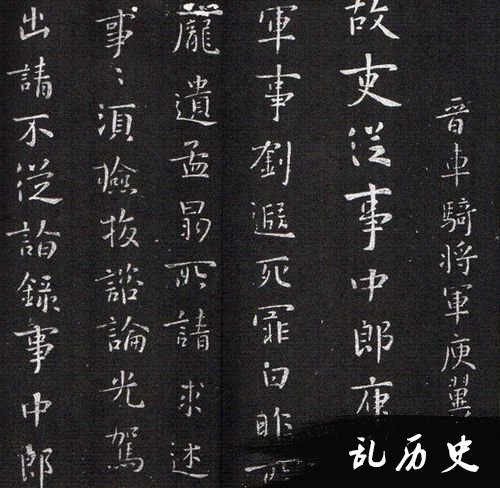 晉車騎將軍庾翼
故吏從事中郎庾
軍事劉遐死罪白昨
龐遺孟昺所請求述
事〻須撿拔諮論光駕
出請不從 錄事中郎
乱历史